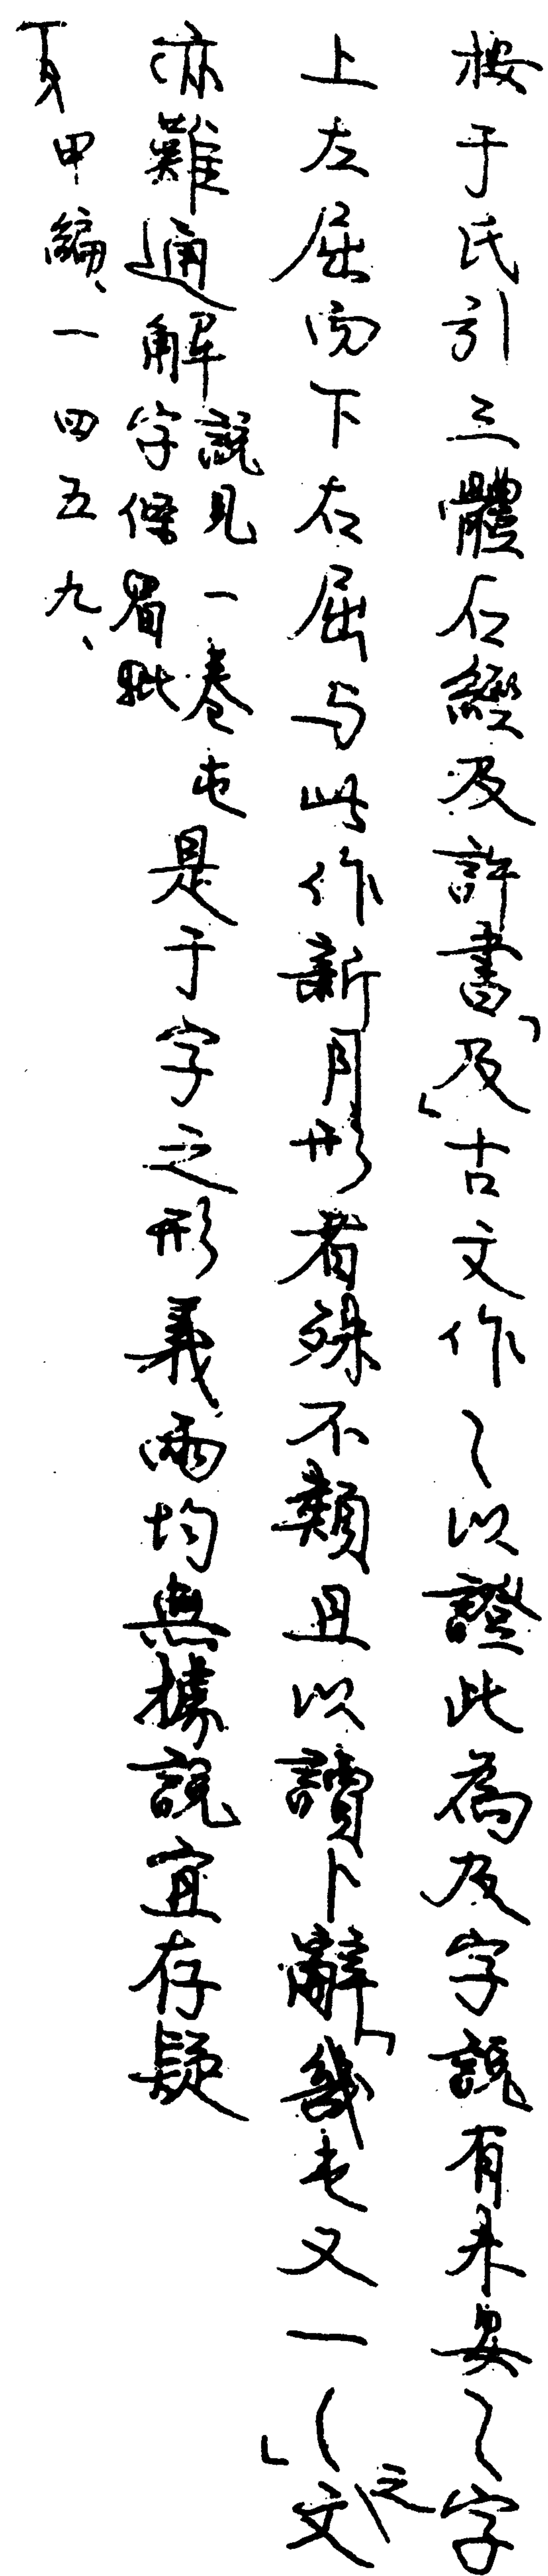 按于氏引三體石經及許書「及」古文作乁以證此為及字說有未安乁字
上左屈向下右屈与此作新月形者殊不類且以讀卜辭「幾屯又一㇏」之文
亦難通解說見一卷屯字條眉批是于字之形義兩均無據說宜存疑
甲編、一四五九、